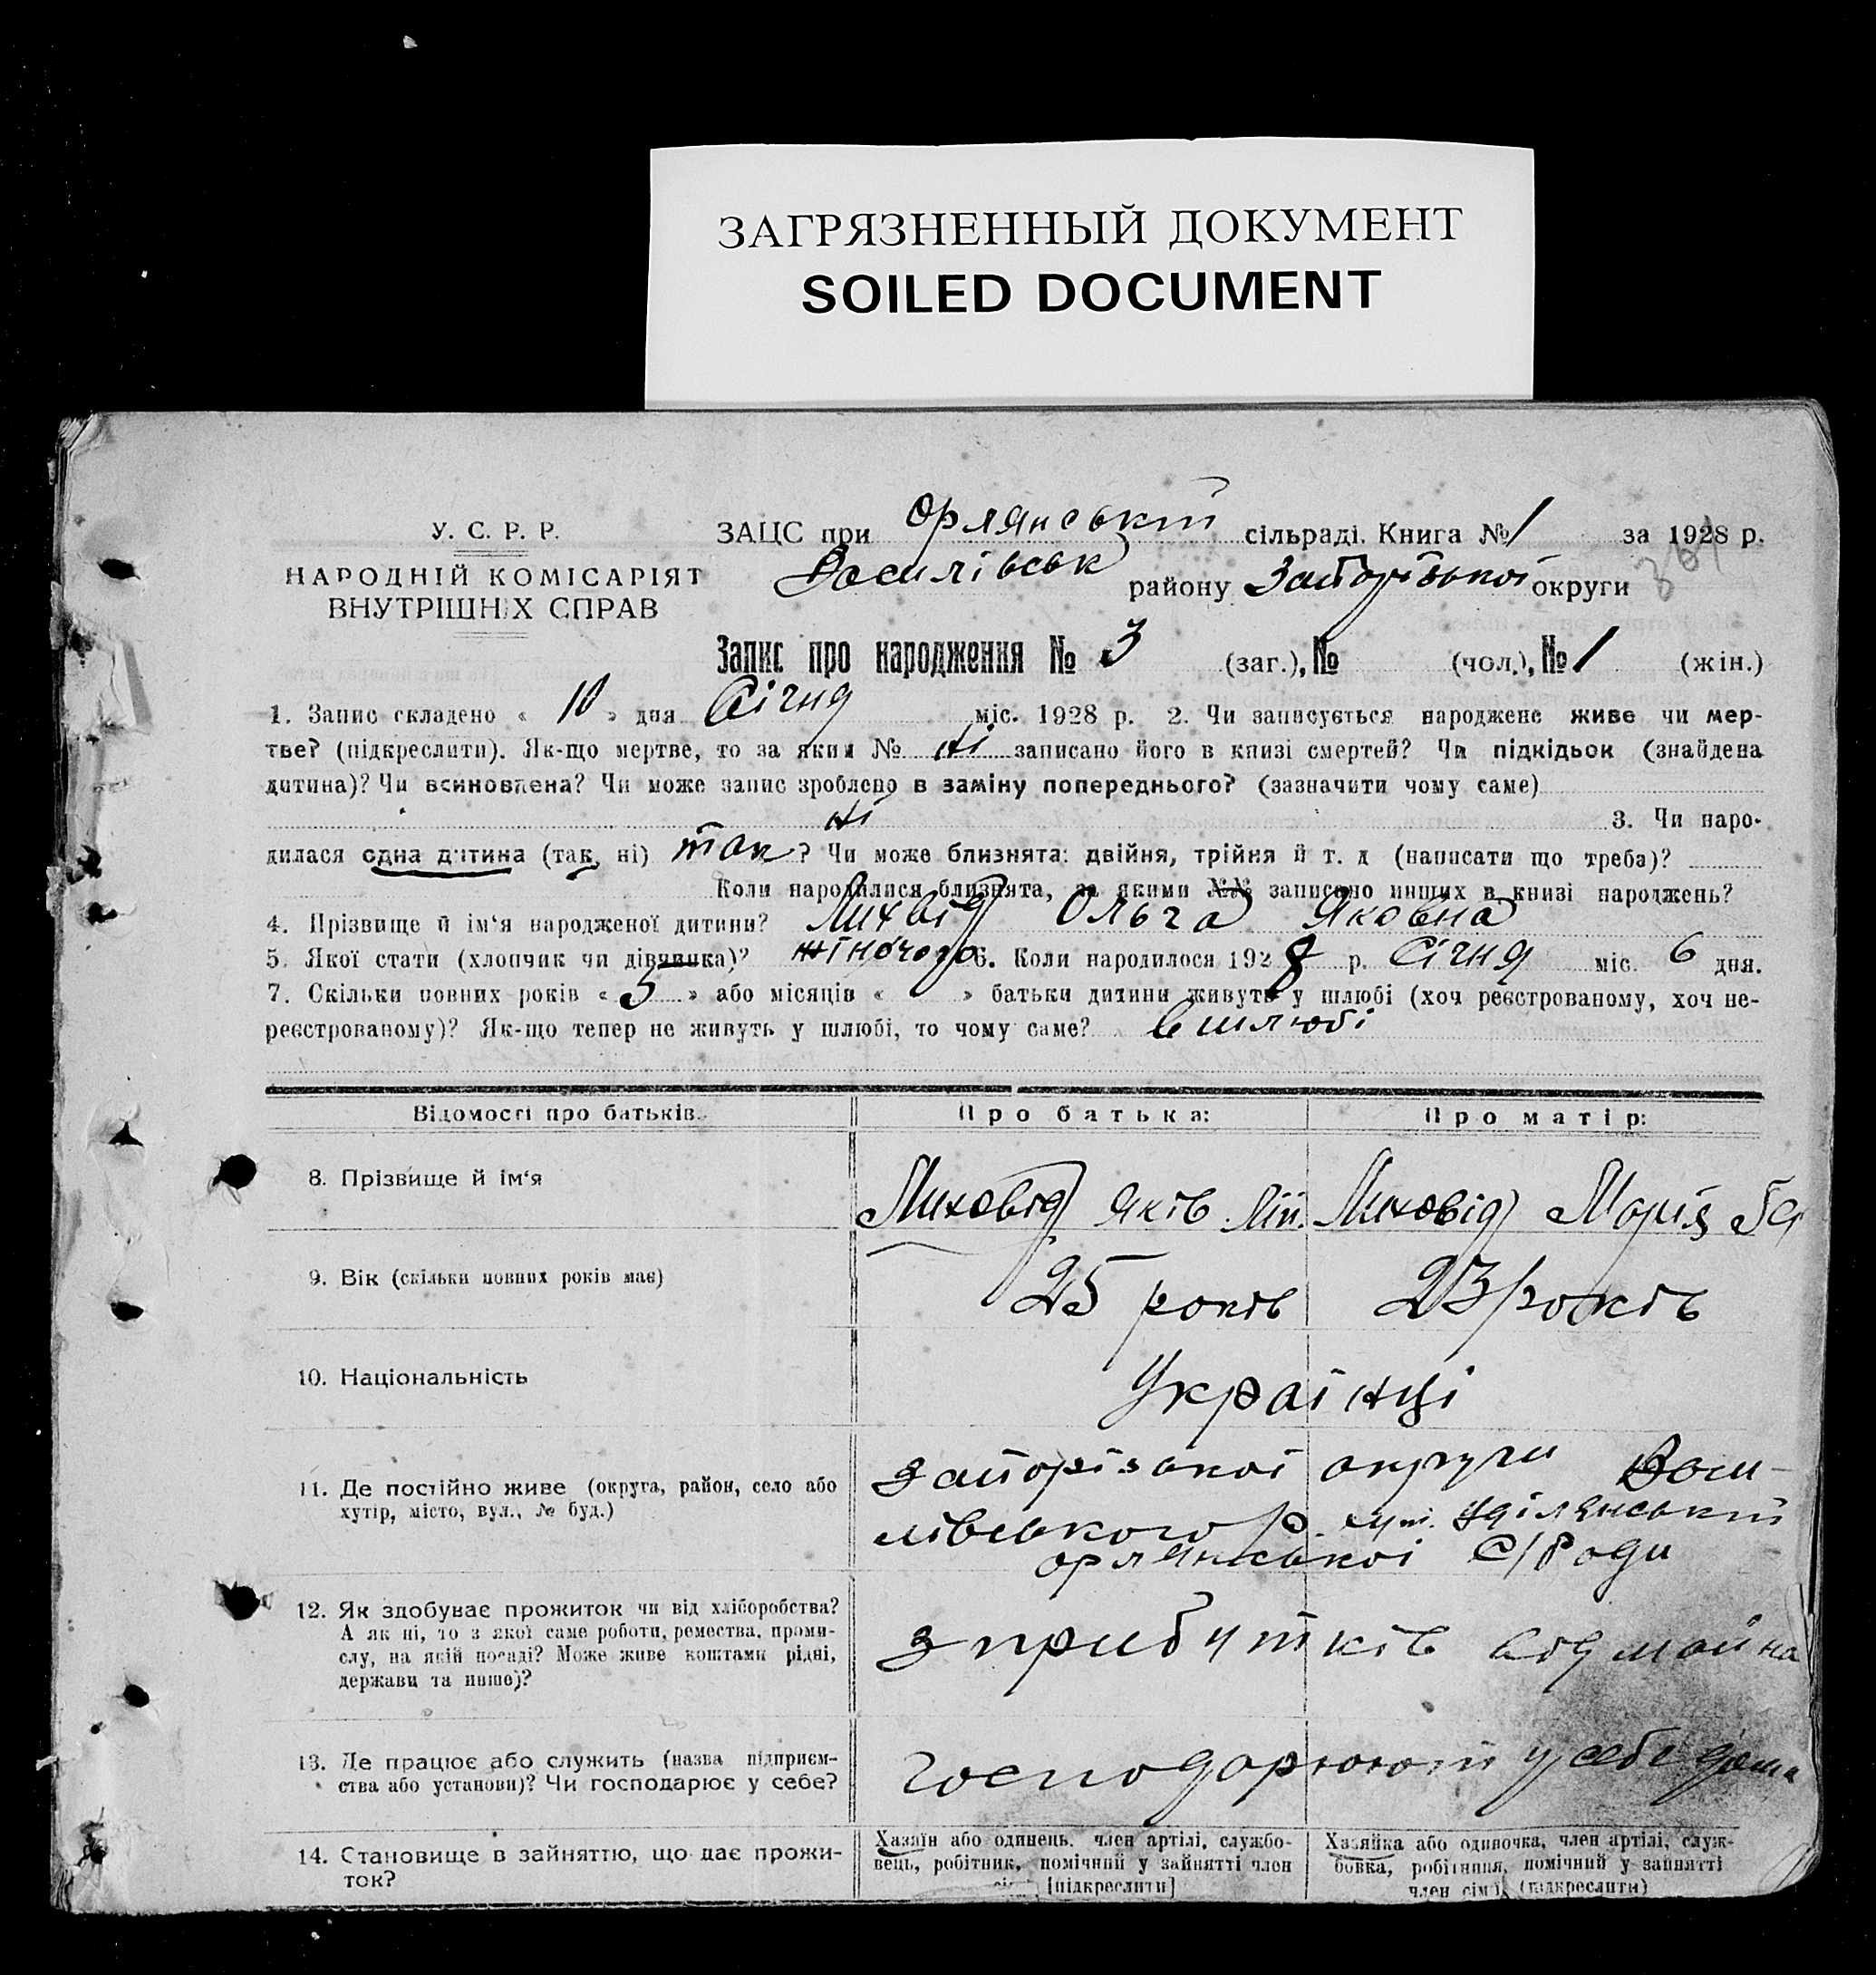 ЗАГРЯЗНЕННЫЙ ДОКУМЕНТ
SOILED DOCUMENT
У. С. Р. Р.
НАРОДНІЙ КОМІСАРІЯТ
ВНУТРІШНІХ СПРАВ
ЗАЦС при Орлянській сільраді. Книга № 1 за 1928 р.
Василівськ району Запорізької округи
Запис про народження № 3 (заг.), № (чол.), № 1 (жін.)
1. Запис складено « 10 » дня Січня міс. 1928 р. 2. Чи записується народжене живе чи мер-
тве? (підкреслити). Як-що мертве, то за яким № ні записано його в книзі смертей? Чи підкідьок (знайдена
дитина)? Чи всиновлена? Чи може запис зроблено в заміну попереднього? (зазначити чому саме)
ні 3. Чи наро-
дилася одна дитина (так, ні) так? Чи може близнята: двійня, трійня й т. д (написати що треба)?
Коли народилися близнята, за якими №№ записано инших в книзі народжень?
4. Прізвище й ім‘я народженої дитини? Лихвід Ольга Яковна
5. Якої стати (хлопчик чи дівчинка)? жіночого 6. Коли народилося 1928 р. Січня міс. 6 дня.
7. Скільки повних років « 5 » або місяців « » батьки дитини живуть у шлюбі (хоч реєстрованому, хоч не-
реєстрованому)? Як-що тепер не живуть у шлюбі, то чому саме? в шлюбі
Відомості про батьків.
Про батька:
Про матір:
8. Прізвище й ім‘я
Лиховід Яків
Лиховід Марія
9. Вік (скільки повних років має)
25 років
23 років
10. Національність
Українці
11. Де постійно живе (округа, район, село або
хутір, місто, вул., № буд.)
Запорізької округи Васи-
лівського р. хут. Уділянський
Орлянської С/Ради
12. Як здобуває прожиток чи від хліборобства?
А як ні, то з якої саме роботи, ремества, проми-
слу, на якій посаді? Може живе коштами рідні,
держави та инше)?
з прибутків від майна
13. Де працює або служить (назва підприєм-
ства або установи)? Чи господарює у себе?
господарюють у себе дома
14. Становище в зайняттю, що дає прожи-
ток?
Хазяїн або одинець, член артілі, службо-
вець, робітник, помічний у зайнятті член
[підкреслити]
Хазяйка або одиночка, член артілі, служ-
бовка, робітниця, помічний у зайнятті
член сім'ї (підкреслити)